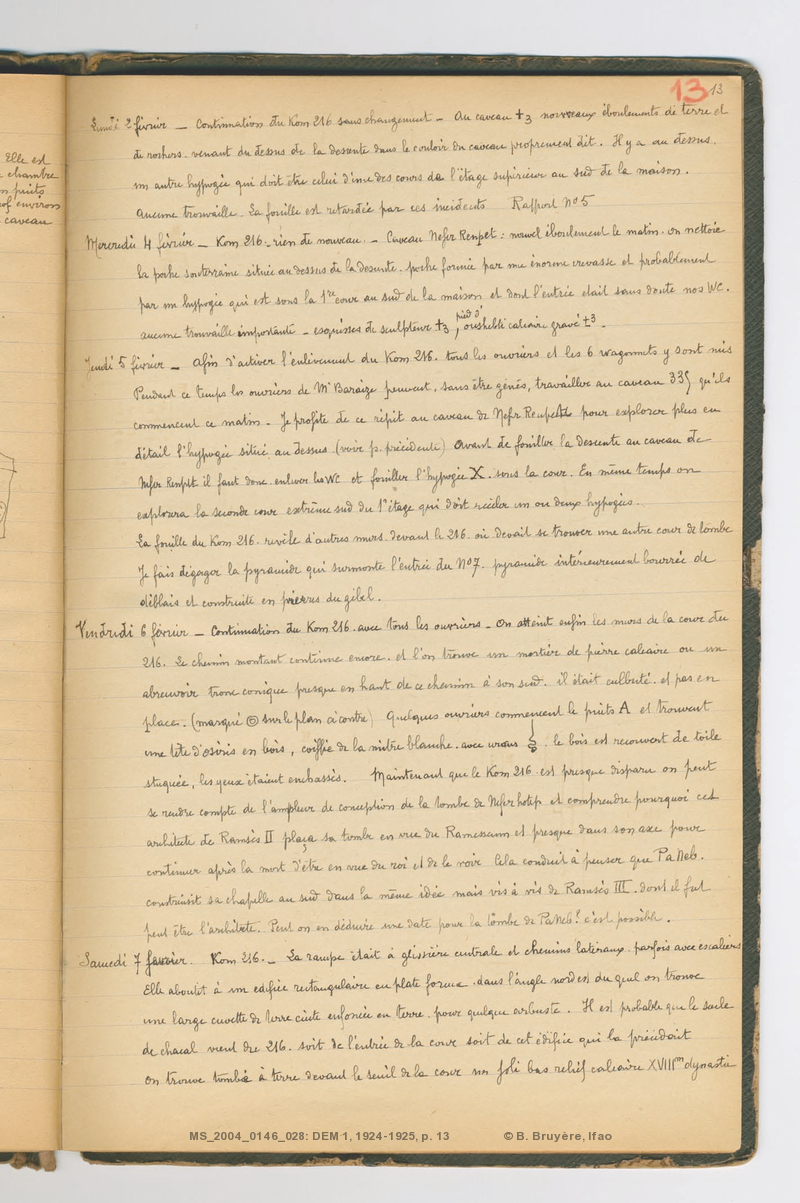 13 13
Lundi 2 février — Continuation du Kom 216 sans changement — Au caveau +3 nouveaux éboulements de terre et
de rochers venant du dessus de la descente dans le couloir du caveau proprement dit. Il y a au dessus
un autre hypogée qui doit être celui d'une des cours de l'étage supérieur au sud de la maison.
Aucune trouvaille. La fouille est retardée par ces incidents Rapport No 5
Mercredi 4 février — Kom 216. rien de nouveau. — Caveau Nefer Renpet : nouvel éboulement le matin. on nettoie
la poche souterraine située au dessus de la descente. poche formée par une énorme crevasse et probablement
par un hypogée qui est sous la 1re cour au sud de la maison et dont l'entrée était sans doute nos WC.
aucune trouvaille importante — esquisses de sculpteur +3, pied d' oushebti calcaire gravé +3.
Jeudi 5 février — Afin d'activer l'enlèvement du Kom 216. tous les ouvriers et les 6 wagonnets y sont mis
Pendant ce temps les ouvriers de Mr Baraize peuvent, sans être gênés, travailler au caveau 335 qu'ils
commencent ce matin. Je profite de ce répit au caveau de Nefer Renpet pour explorer plus en
détail l'hypogée situé au dessus (voir p. précédente) Avant de fouiller la descente au caveau de
Nefer Renpet il faut donc enlever les WC et fouiller l'hypogée X sous la cour. En même temps on
explorera la seconde cour extrême sud du 1er étage qui doit recéler un ou deux hypogées.
La fouille du Kom 216. révèle d'autres murs devant le 216 où devait se trouver une autre cour de tombe
Je fais dégager la pyramide qui surmonte l'entrée du No 7. pyramide intérieurement bourrée de
déblais et construite en pierres du gebel.
Vendredi 6 février — Continuation du Kom 216. avec tous les ouvriers — On atteint enfin les murs de la cour du
216. Le chemin montant continue encore. et l'on trouve un mortier de pierre calcaire ou un
abreuvoir tronc conique presque en haut de ce chemin à son sud. il était culbuté et pas en
place. (marqué © sur le plan ci contre) Quelques ouvriers commencent le puits A et trouvent
une tête d'osiris en bois, coiffée de la mitre blanche avec uraeus : le bois est recouvert de toile
stuquée, les yeux étaient enchassés. Maintenant que le Kom 216 est presque disparu on peut
se rendre compte de l'ampleur de conception de la tombe de Neferhotep et comprendre pourquoi cet
architecte de Ramsès II plaça sa tombe en vue du Ramesseum et presque dans son axe pour
continuer après la mort d'être en vue du roi et de le voir Cela conduit à penser que PaNeb.
construisit sa chapelle au sud dans la même idée mais vis à vis de Ramsès III. dont il fut
peut être l'architecte. Peut on en déduire une date pour la tombe de PaNeb? c'est possible.
Samedi 7 février. Kom 216. — La rampe était à glissière centrale et chemins latéraux. parfois avec escaliers
Elle aboutit à un edifice rectangulaire en plate forme. dans l'angle nord est du quel on trouve
une large cuvette de terre cuite enfoncée en terre. pour quelque arbuste. Il est probable que le socle
de chacal vient de 216. soit de l'entrée de la cour soit de cet édifice qui la précédait
on trouve tombé à terre devant le seuil de la cour un joli bas relief calcaire XVIIIme dynastie
Elle est
chambre
puits
environ
caveau
MS_2004_0146_028: DEM 1, 1924-1925, p. 13 © B. Bruyère, Ifao